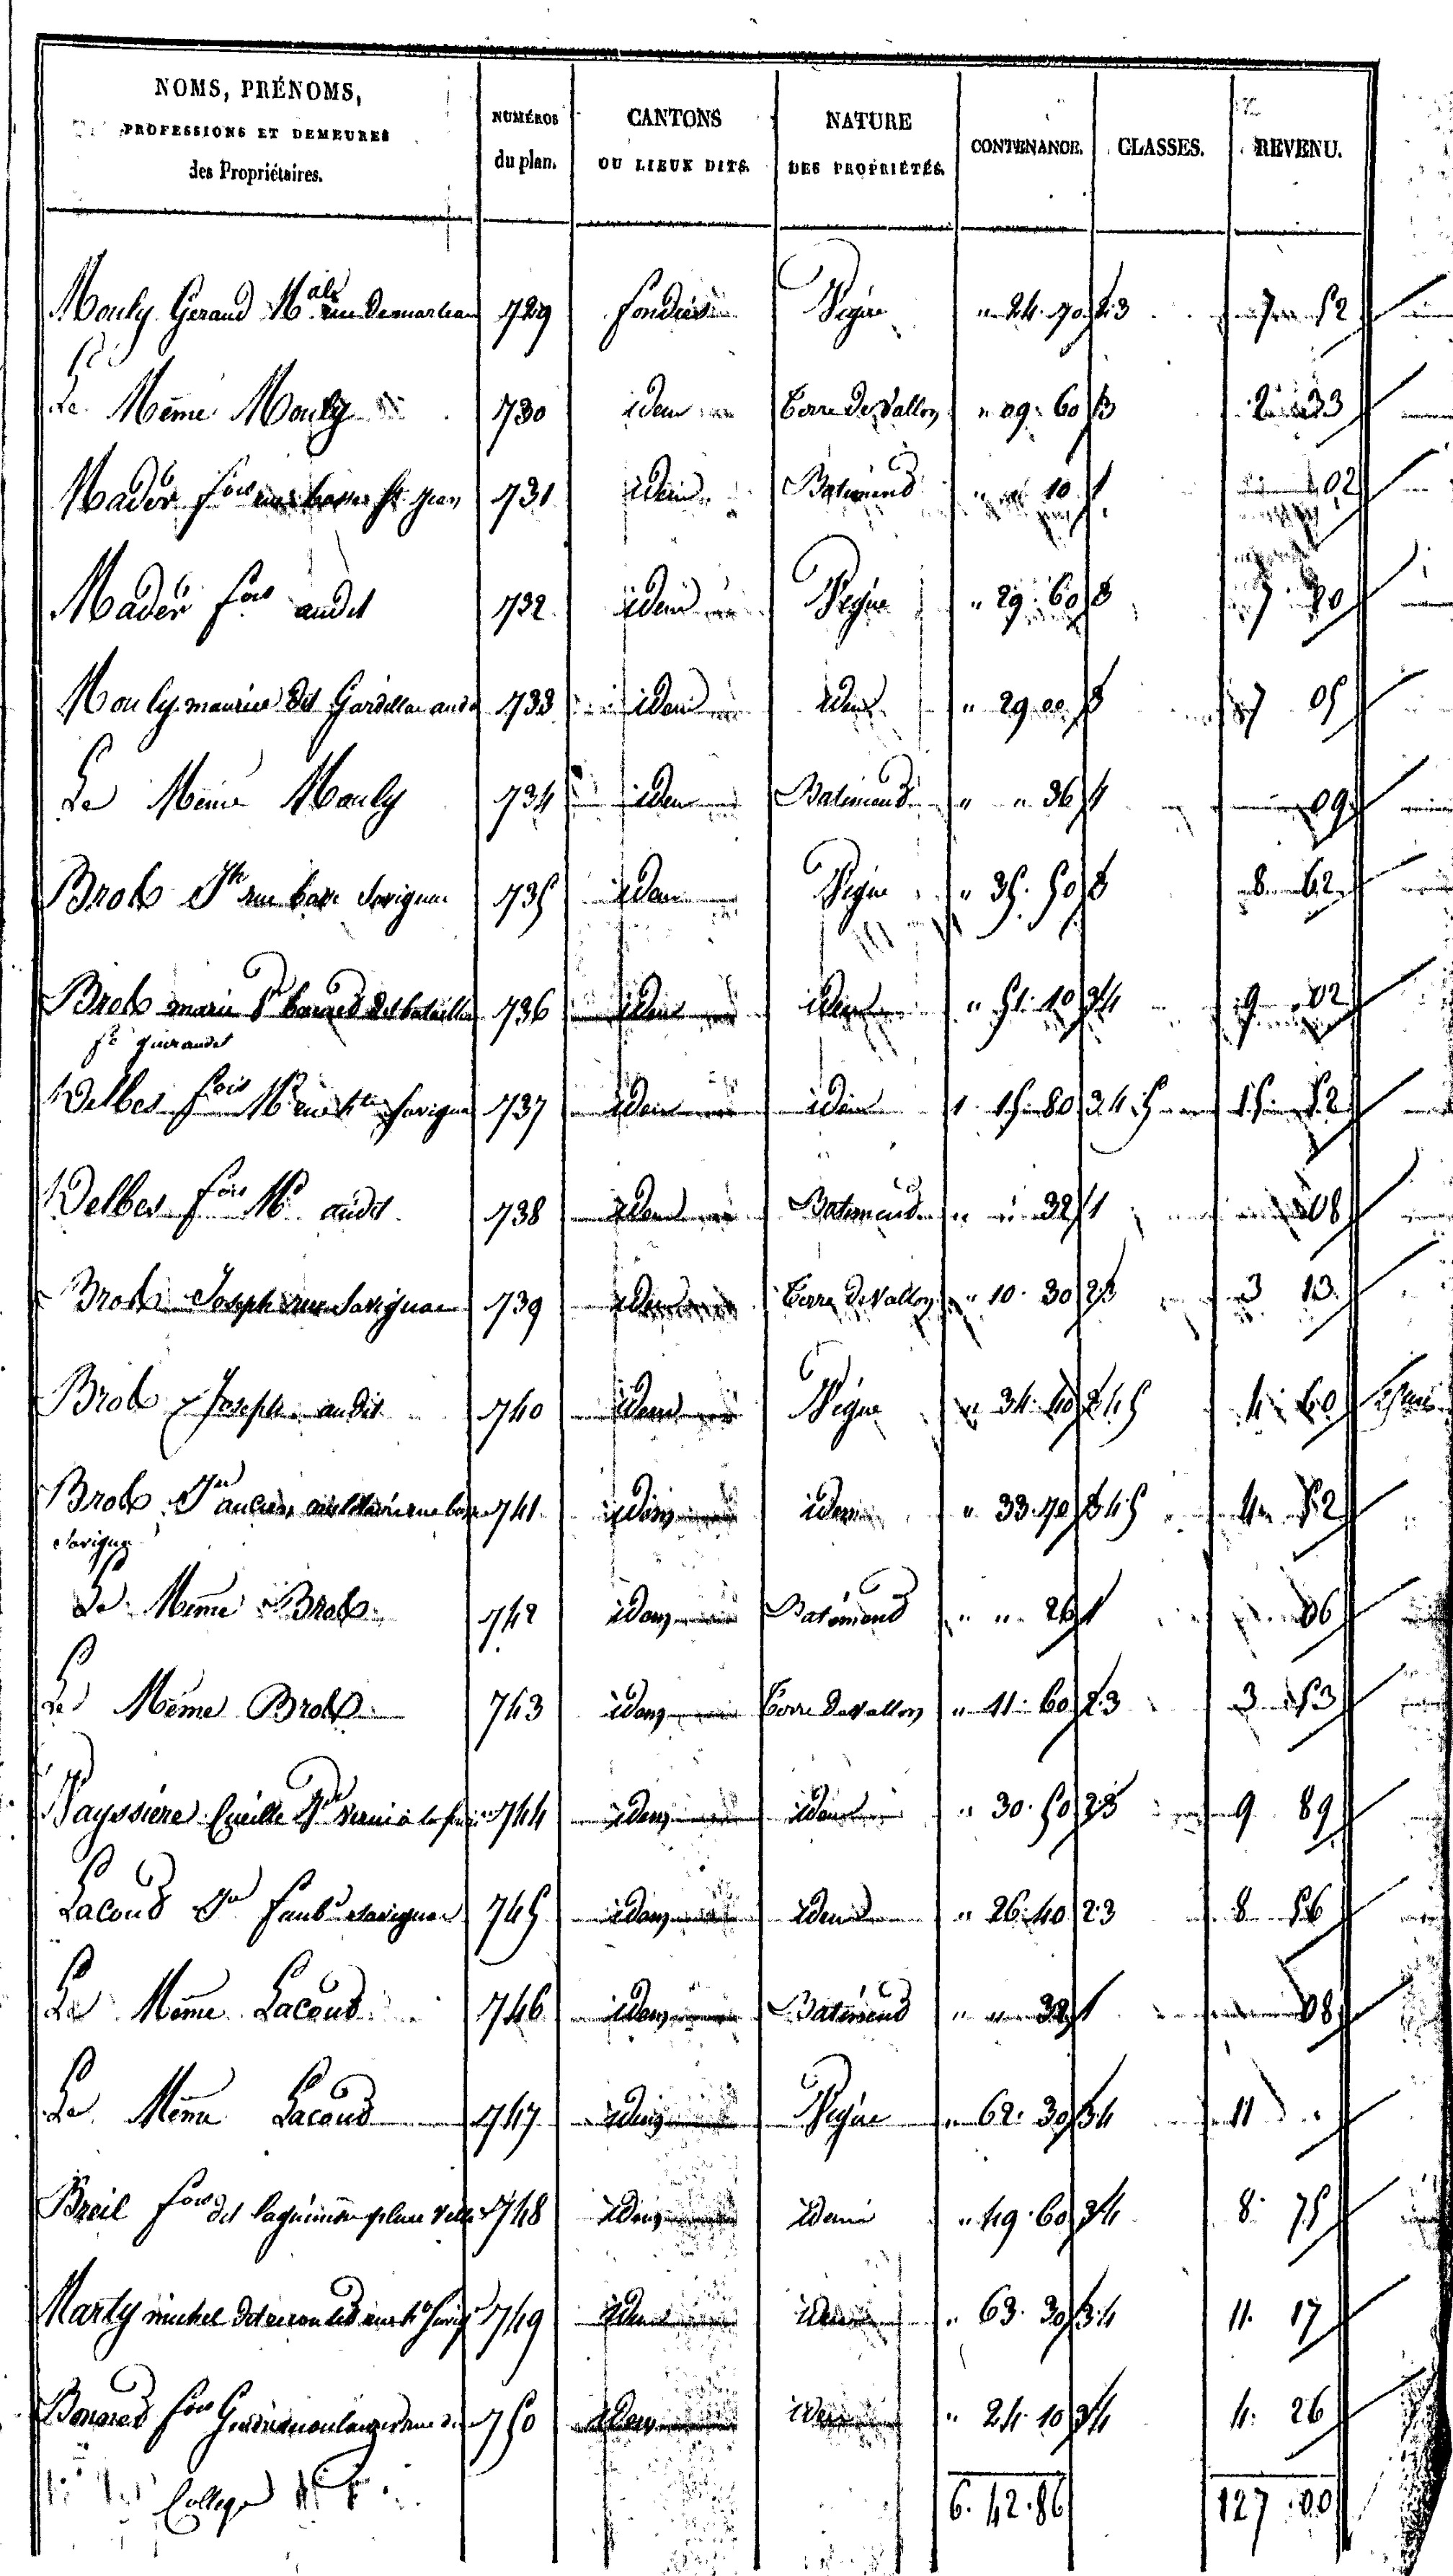 NOMS, PRÉNOMS, PROFESSIONS ET DEMEURES des Propriétaires. NUMÉROS du plan. CANTONS OU LIEUX DITS. NATURE DES PROPRIÉTÉS. CONTENANCE. CLASSES. REVENU.
Mouly Geraud 729 fondiès Vigne " 24. 70 2.3 7 52
Le Même Mouly 730 idem Terre De Vallon " 09. 60 3 2 33
Mader fois rue basse St Jean 731 idem Batiment 10 1 02
Mader fois audit 732 idem Vigne " 29. 60 3 7 20
Mouly maurice dit 733 idem idem " 29. 00 3 7 05
Le Même Mouly 734 idem Batiment " " 36 1 09
Brob Jh rue basse Savignac 735 idem Vigne " 35. 50 3 8 62
Brob marie 736 idem idem " 51. 10 34 9 02
Delbes fois Md rue hte Savignac 737 idem idem 1 15 80 3 4 5 15 52
Delbes fois Md audit 738 idem Batiment " " 32 1 08
Brob Joseph rue Savignac 739 idem Terre De Vallon " 10. 30 23 3 13
Brob Joseph audit 740 idem Vigne " 34. 40 345 4 60
Brob Jn ancien rue basse 741 idem idem " 33. 70 345 4 52
Savignac
Le Même Brob 742 idem Batiment " " 26 1 06
Le Même Brob 743 idem Terre De Vallon " 11. 60 23 3 53
Vayssiere 744 idem idem " 30. 50 23 9 89
Lacout Jn faubg Savignac 745 idem idem " 26. 40 23 8 56
Le Même Lacout 746 idem Batiment " " 32 1 08
Le Même Lacout 747 idem Vigne " 62. 30 34 11 "
Breil fois dit place 748 idem idem " 49. 60 34 8 75
Marty michel dit rue hte Savig 749 idem idem " 63. 30 34 11 17
fois rue du 750 idem idem " 24. 10 34 4. 26
College
6. 42. 86 127. 00